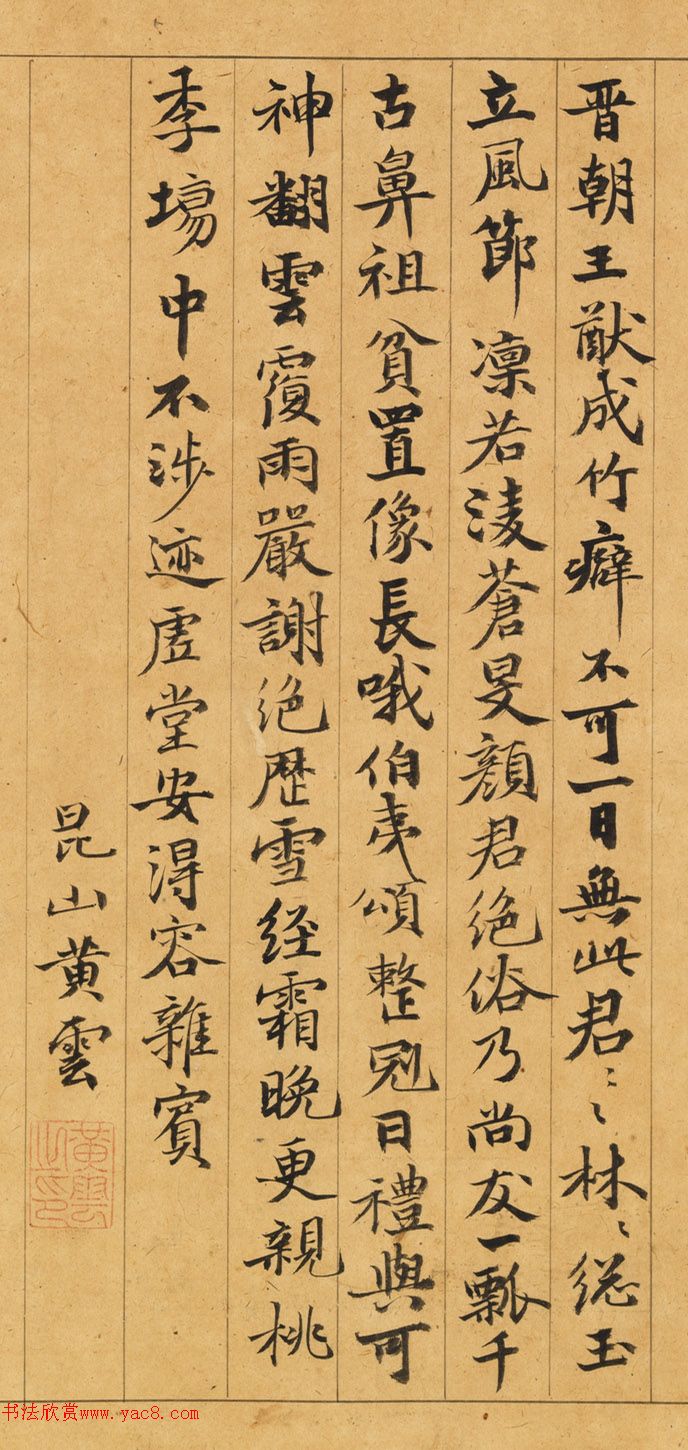 晋朝王猷成竹癖不可一日無此君〻〻林〻総玉
立風節凛若淩蒼旻顔君絶俗乃尚友一瓢千
古鼻祖貧置像長哦伯夷頌整冠日禮與可
神翻雲覆雨嚴謝絶歴雪經霜晚更親桃
季場中不涉迹虚堂安得容雜賓
昆山黄雲
黄雲之印
书法欣赏www.yac8.com